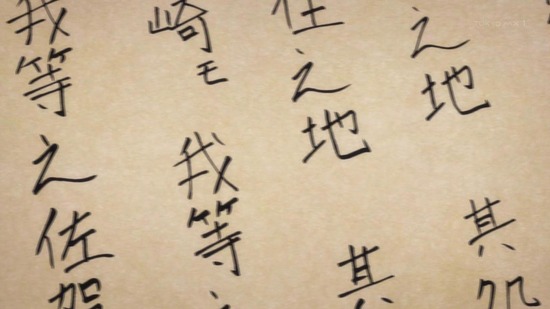 之地 其
之地 其
崎モ 我等
我等之佐賀